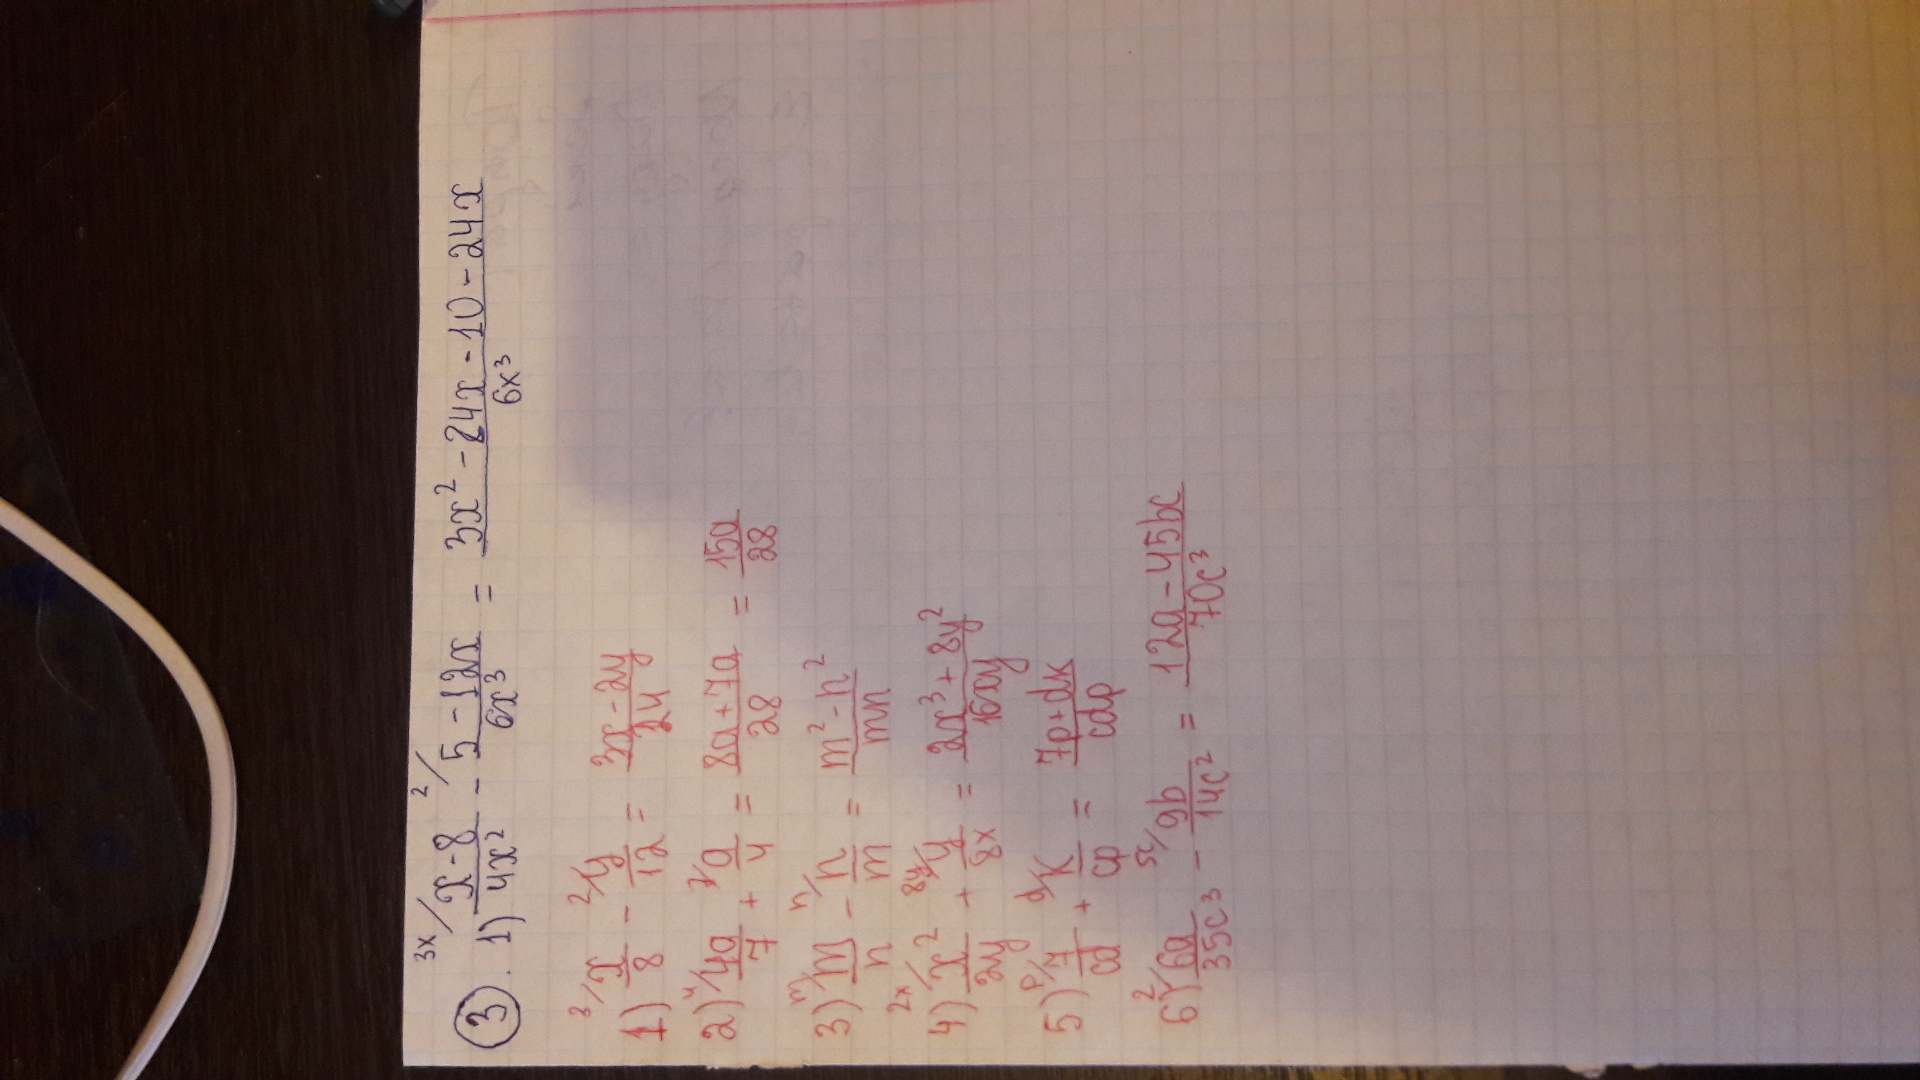 3. 1) 3x/ (x-8)/(4x²) - 2/ (5-12x)/(6x³) = (3x²-24x-10-24x)/(6x³)
1) 3/ x/8 - 2/ y/12 = (3x-2y)/24
2) 4/ 4a/7 + 7/ a/4 = (8a+7a)/28 = 15a/28
3) m/ m/n - n/ n/m = (m²-n²)/(mn)
4) 2x/ x²/(2y) + 8y/ y/(8x) = (2x³+8y²)/(16xy)
5) p/ 7/(cd) + d/ k/(cp) = (7p+dk)/(cdp)
6) 2/ 6a/(35c³) - 5c/ 9b/(14c²) = (12a-45bc)/(70c³)